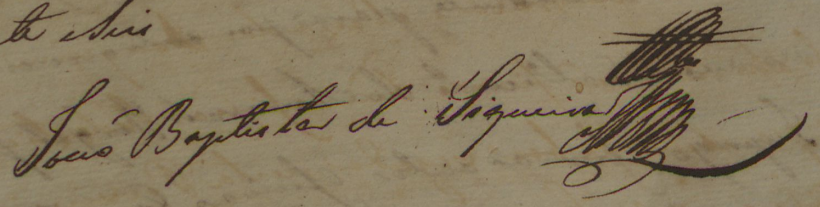 te seis
João Baptista de Siqueira